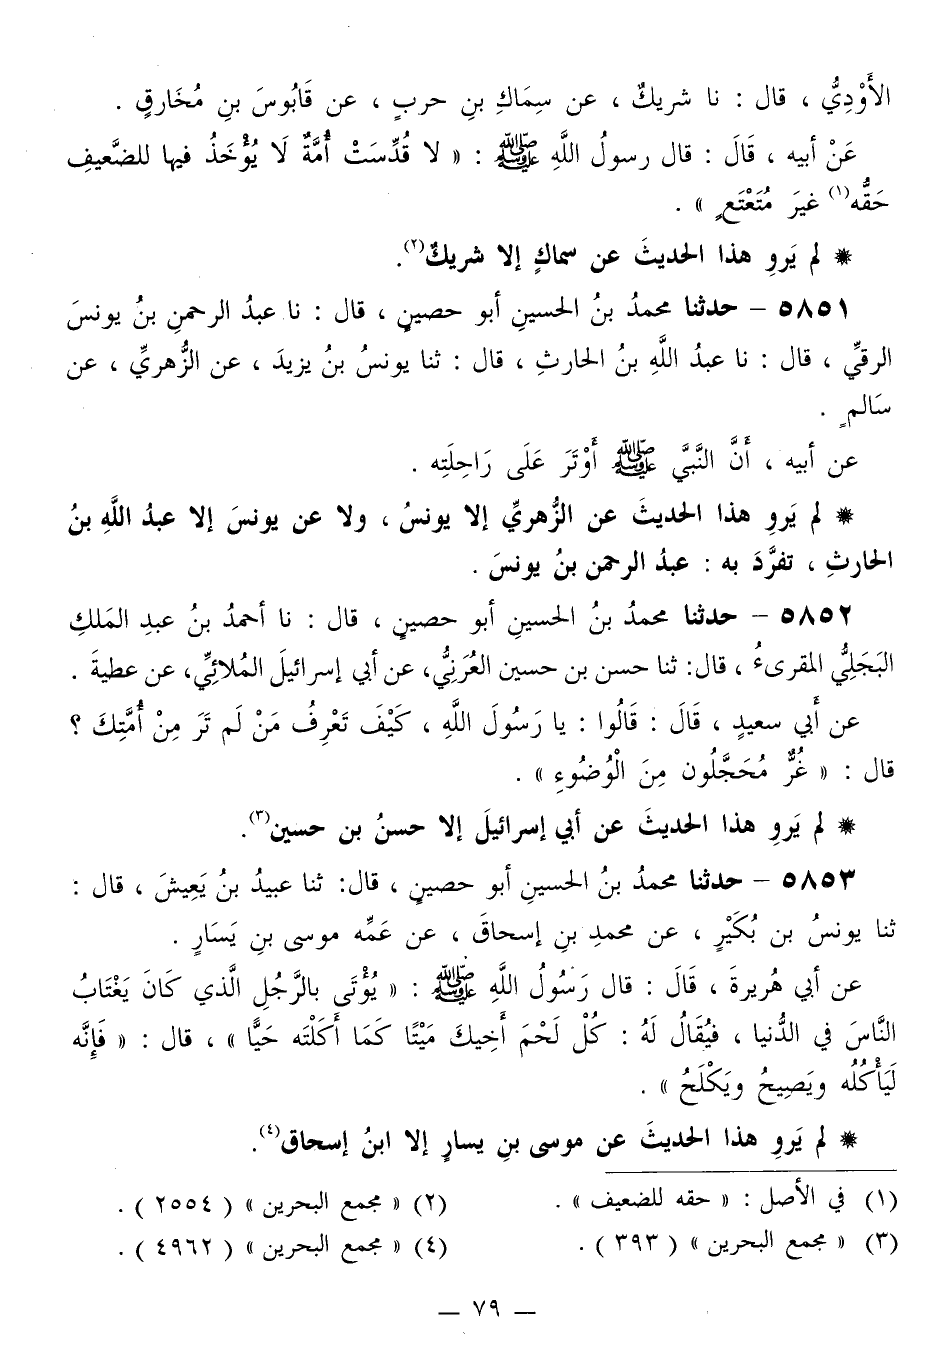 الأَوْدِيُّ ، قال : نا شريكٌ ، عن سِمَاكِ بنِ حربٍ ، عن قَابُوسَ بنِ مُخَارقٍ .
عَنْ أبيه ، قَالَ : قال رسولُ اللَّهِ ﷺ : « لا قُدِّسَتْ أُمَّةٌ لَا يُؤْخَذُ فيها للضَّعيفِ
حَقُّه(١) غيرَ مُتَعْتَعٍ » .
* لم يَروِ هذا الحديثَ عن سماكٍ إلا شريكٌ(٢).
٥٨٥١ – حدثنا محمدُ بنُ الحسينِ أبو حصينٍ ، قال : نا عبدُ الرحمنِ بنُ يونسَ
الرقيِّ ، قال : نا عبدُ اللَّهِ بنُ الحارثِ ، قال : ثنا يونسُ بنُ يزيدَ ، عن الزُّهريِّ ، عن
سَالمٍ .
عن أبيه ، أَنَّ النَّبيَّ ﷺ أَوْتَرَ عَلَى رَاحِلَتِه .
* لم يَروِ هذا الحديثَ عن الزُّهريِّ إلا يونسُ ، ولا عن يونسَ إلا عبدُ اللَّهِ بنُ
الحارثِ ، تفرَّدَ به : عبدُ الرحمنِ بنُ يونسَ .
٥٨٥٢ – حدثنا محمدُ بنُ الحسينِ أبو حصينٍ ، قال : نا أحمدُ بنُ عبدِ المَلكِ
البَجَليُّ المقرىءُ ، قال: ثنا حسن بن حسين العُرَنِيُّ، عن أبي إسرائيلَ المُلائِيِّ، عن عطيةَ .
عن أَبي سعيدٍ ، قَالَ : قَالُوا : يا رَسُولَ اللَّهِ ، كَيْفَ تَعْرِفُ مَنْ لَم تَرَ مِنْ أُمَّتِكَ ؟
قال : « غُرٌّ مُحَجَّلُون مِنَ الْوُضُوءِ » .
* لم يَروِ هذا الحديثَ عن أبي إسرائيلَ إلا حسنُ بن حسين(٣).
٥٨٥٣ – حدثنا محمدُ بنُ الحسينِ أبو حصينٍ ، قال: ثنا عبيدُ بنُ يَعِيشَ ، قال :
ثنا يونسُ بن بُكَيْرٍ ، عن محمدِ بنِ إسحاقَ ، عن عَمِّه موسى بنِ يَسَارٍ .
عن أبي هُريرةَ ، قَالَ : قال رَسُولُ اللَّهِ ﷺ : « يُؤْتَى بالرَّجُلِ الَّذي كَانَ يَغْتَابُ
النَّاسَ في الدُّنيا ، فيُقَالُ لَهُ : كُلْ لَحْمَ أَخِيكَ مَيْتًا كَمَا أَكَلْتَه حَيًّا » ، قال : « فَإِنَّه
لَيَأْكُلُه ويَصِيحُ ويَكْلَحُ » .
* لم يَروِ هذا الحديثَ عن موسى بنِ يسارٍ إلا ابنُ إسحاق(٤).
(١) في الأصل : « حقه للضعيف » . (٢) « مجمع البحرين » ( ٢٥٥٤ ) .
(٣) « مجمع البحرين » ( ٣٩٣ ) . (٤) « مجمع البحرين » ( ٤٩٦٢ ) .
— ٧٩ —